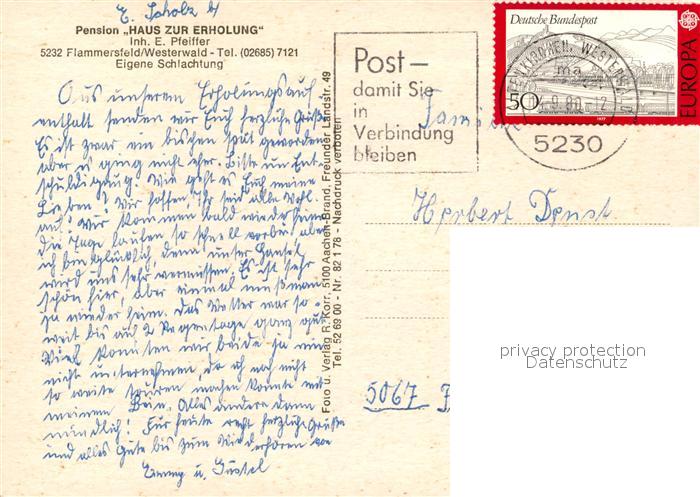 E. Scholz b/
Pension „HAUS ZUR ERHOLUNG"
Inh. E. Pfeiffer
5232 Flammersfeld/Westerwald - Tel. (02685) 7121
Eigene Schlachtung
Aus unserem Erholungsauf-
enthalt senden wir Euch herzliche Grüße
Es ist zwar ein bischen spät geworden
aber es ging nicht eher. Bitte um Ent-
schuldigung. Wie geht es Euch meine
Lieben? Wir hoffen, Ihr seid alle wohl-
auf! Wir kommen bald wieder heim
die Tage laufen so schnell vorbei aber
ich bin glücklich denn unser
wird uns sehr vermissen. Es ist sehr
schön hier, aber einmal muß man
ja wieder heim. Das Wetter war so-
weit bis auf 2 Regentage ganz gut
Viel konnten wir beide ja nun
nicht unternehmen, da ich noch nicht
so weite machen konnte mit
meinem Bein. Alles andere dann
mündlich! Für heute recht herzliche Grüße
und alles Gute bis zum Wiederhören von
Emmy u. Gustel
Foto u. Verlag R. Korr, 5100 Aachen-Brand, Freunder Landstr. 49
Tel. 52 69 00 - Nr. 82 1 78 - Nachdruck verboten
Post –
damit Sie
in
Verbindung
bleiben
Deutsche Bundespost
50
EUROPA
1977
ALTENKIRCHEN, WESTERW
ma
.9.80-12
5230
Familie
Herbert Ernst
5067
privacy protection
Datenschutz